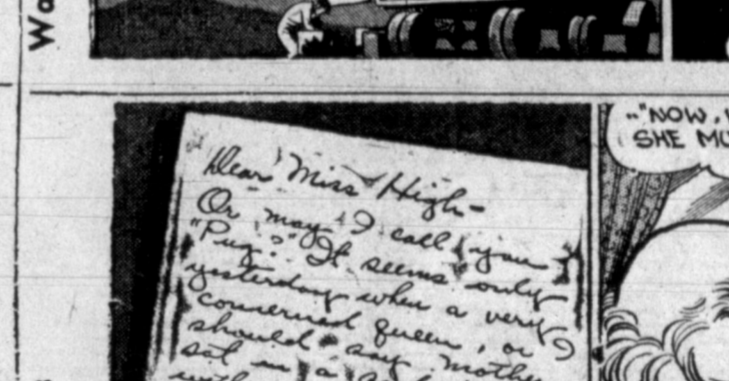 Wa
Dear Miss High-
Or may I call you
"Pug?" It seems only
yesterday when a very
concerned queen, or
should I say mother
sat in a
.."NOW,
SHE MU